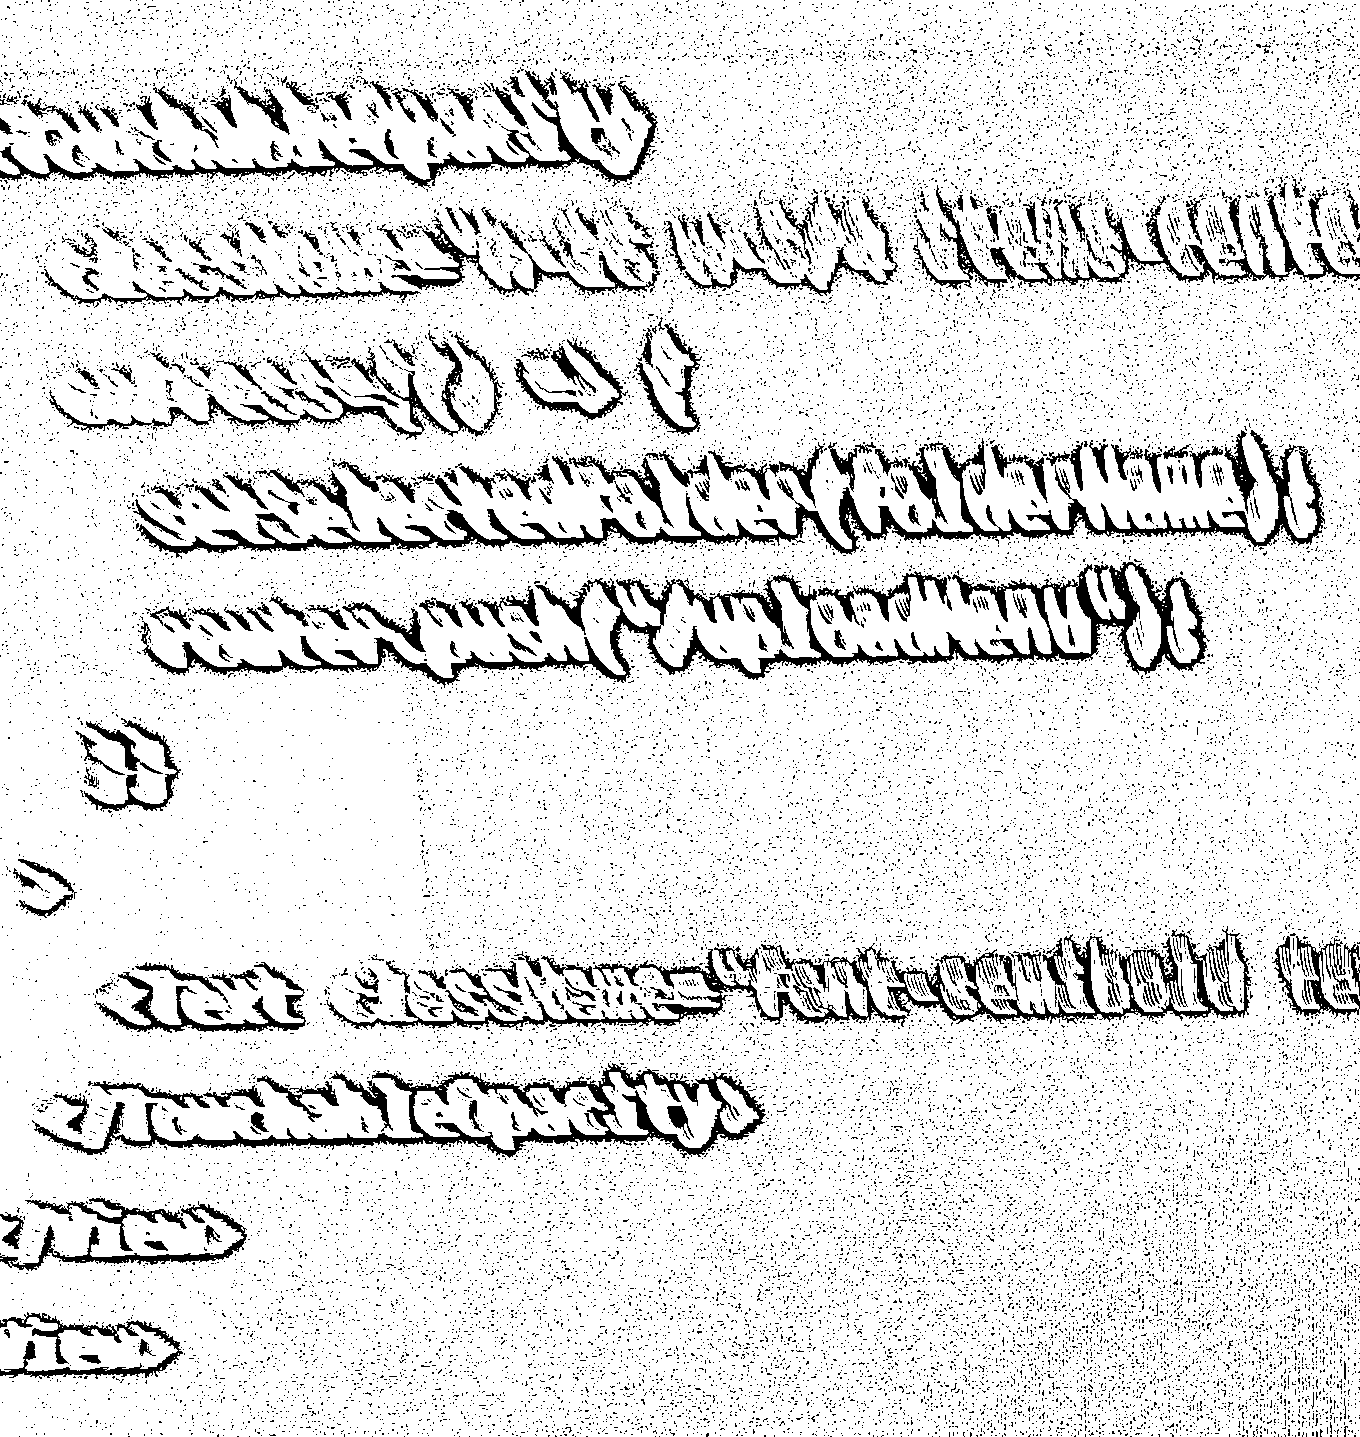 <TouchableOpacity
className="w-full items-center
onPress={() => {
setSelectedFolder(folderName);
router.push("/uploadMenu");
}}
>
<Text className="font-semibold
</TouchableOpacity>
</View>
View>